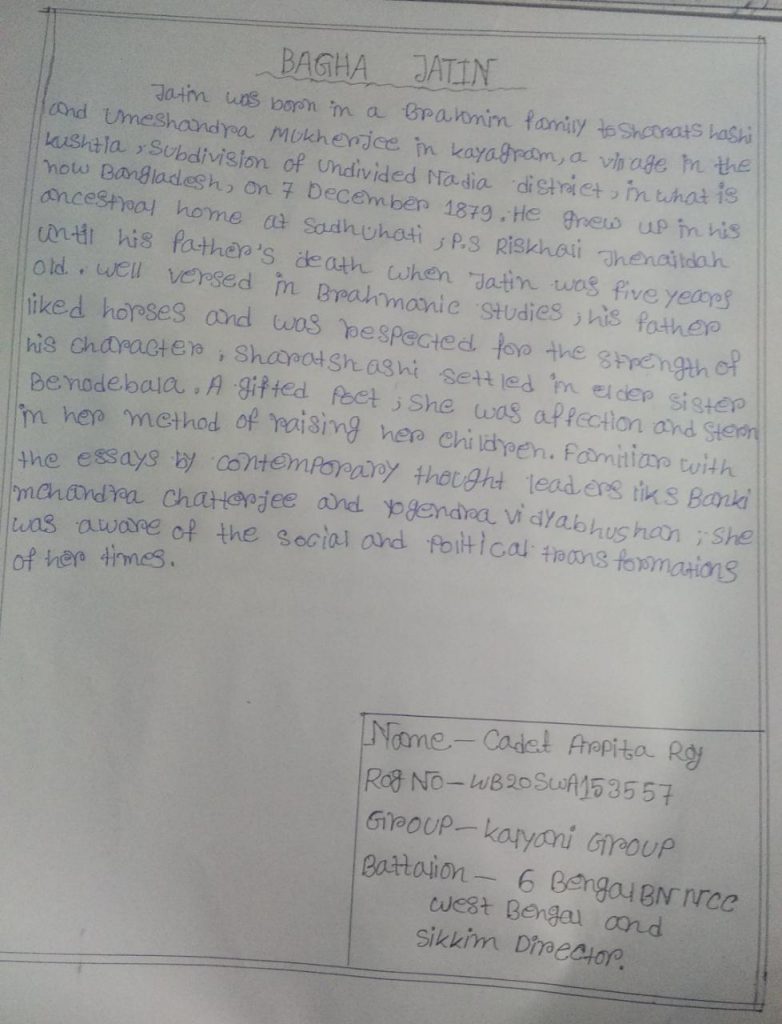 BAGHA JATIN
Jatin was born in a Brahmin family to Sharatshashi
and Umeshandra Mukherjee in kayagram, a village in the
kushtia, Subdivision of undivided Nadia district, in what is
now Bangladesh, on 7 December 1879. He grew up in his
ancestral home at Sadhuhati, P.S Riskhali Jhenaidah
until his father's death when Jatin was five years
old. well versed in Brahmanic studies, his father
liked horses and was respected for the strength of
his character, Sharatshashi settled in elder sister
Benodebala. A gifted Poet, she was affection and stern
in her method of raising her children. Familiar with
the essays by contemporary thought leaders liks Banki
mchandra Chatterjee and yogendra vidyabhushan, she
was aware of the social and Political transformations
of her times.
Name - Cadet Arpita Roy
Rag No - WB20SWA153557
Group - Kalyani Group
Battalion - 6 Bengal BN NCC
west Bengal and
Sikkim Director.